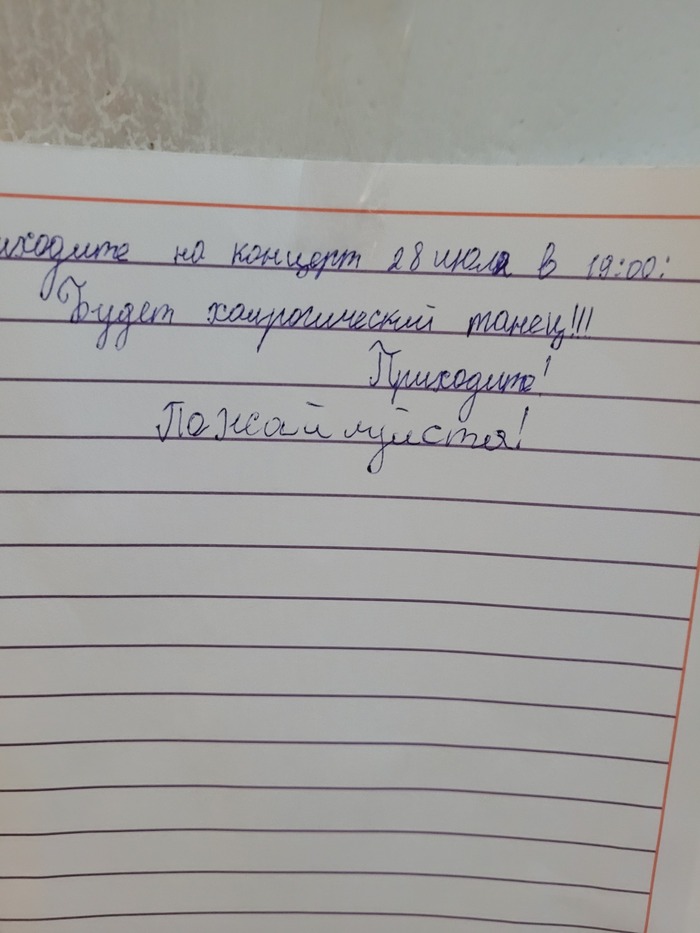 иходите на концерт 28 июля в 19:00!
Будет хаирогический танец!!!
Приходите!
Пожайлуйстя!